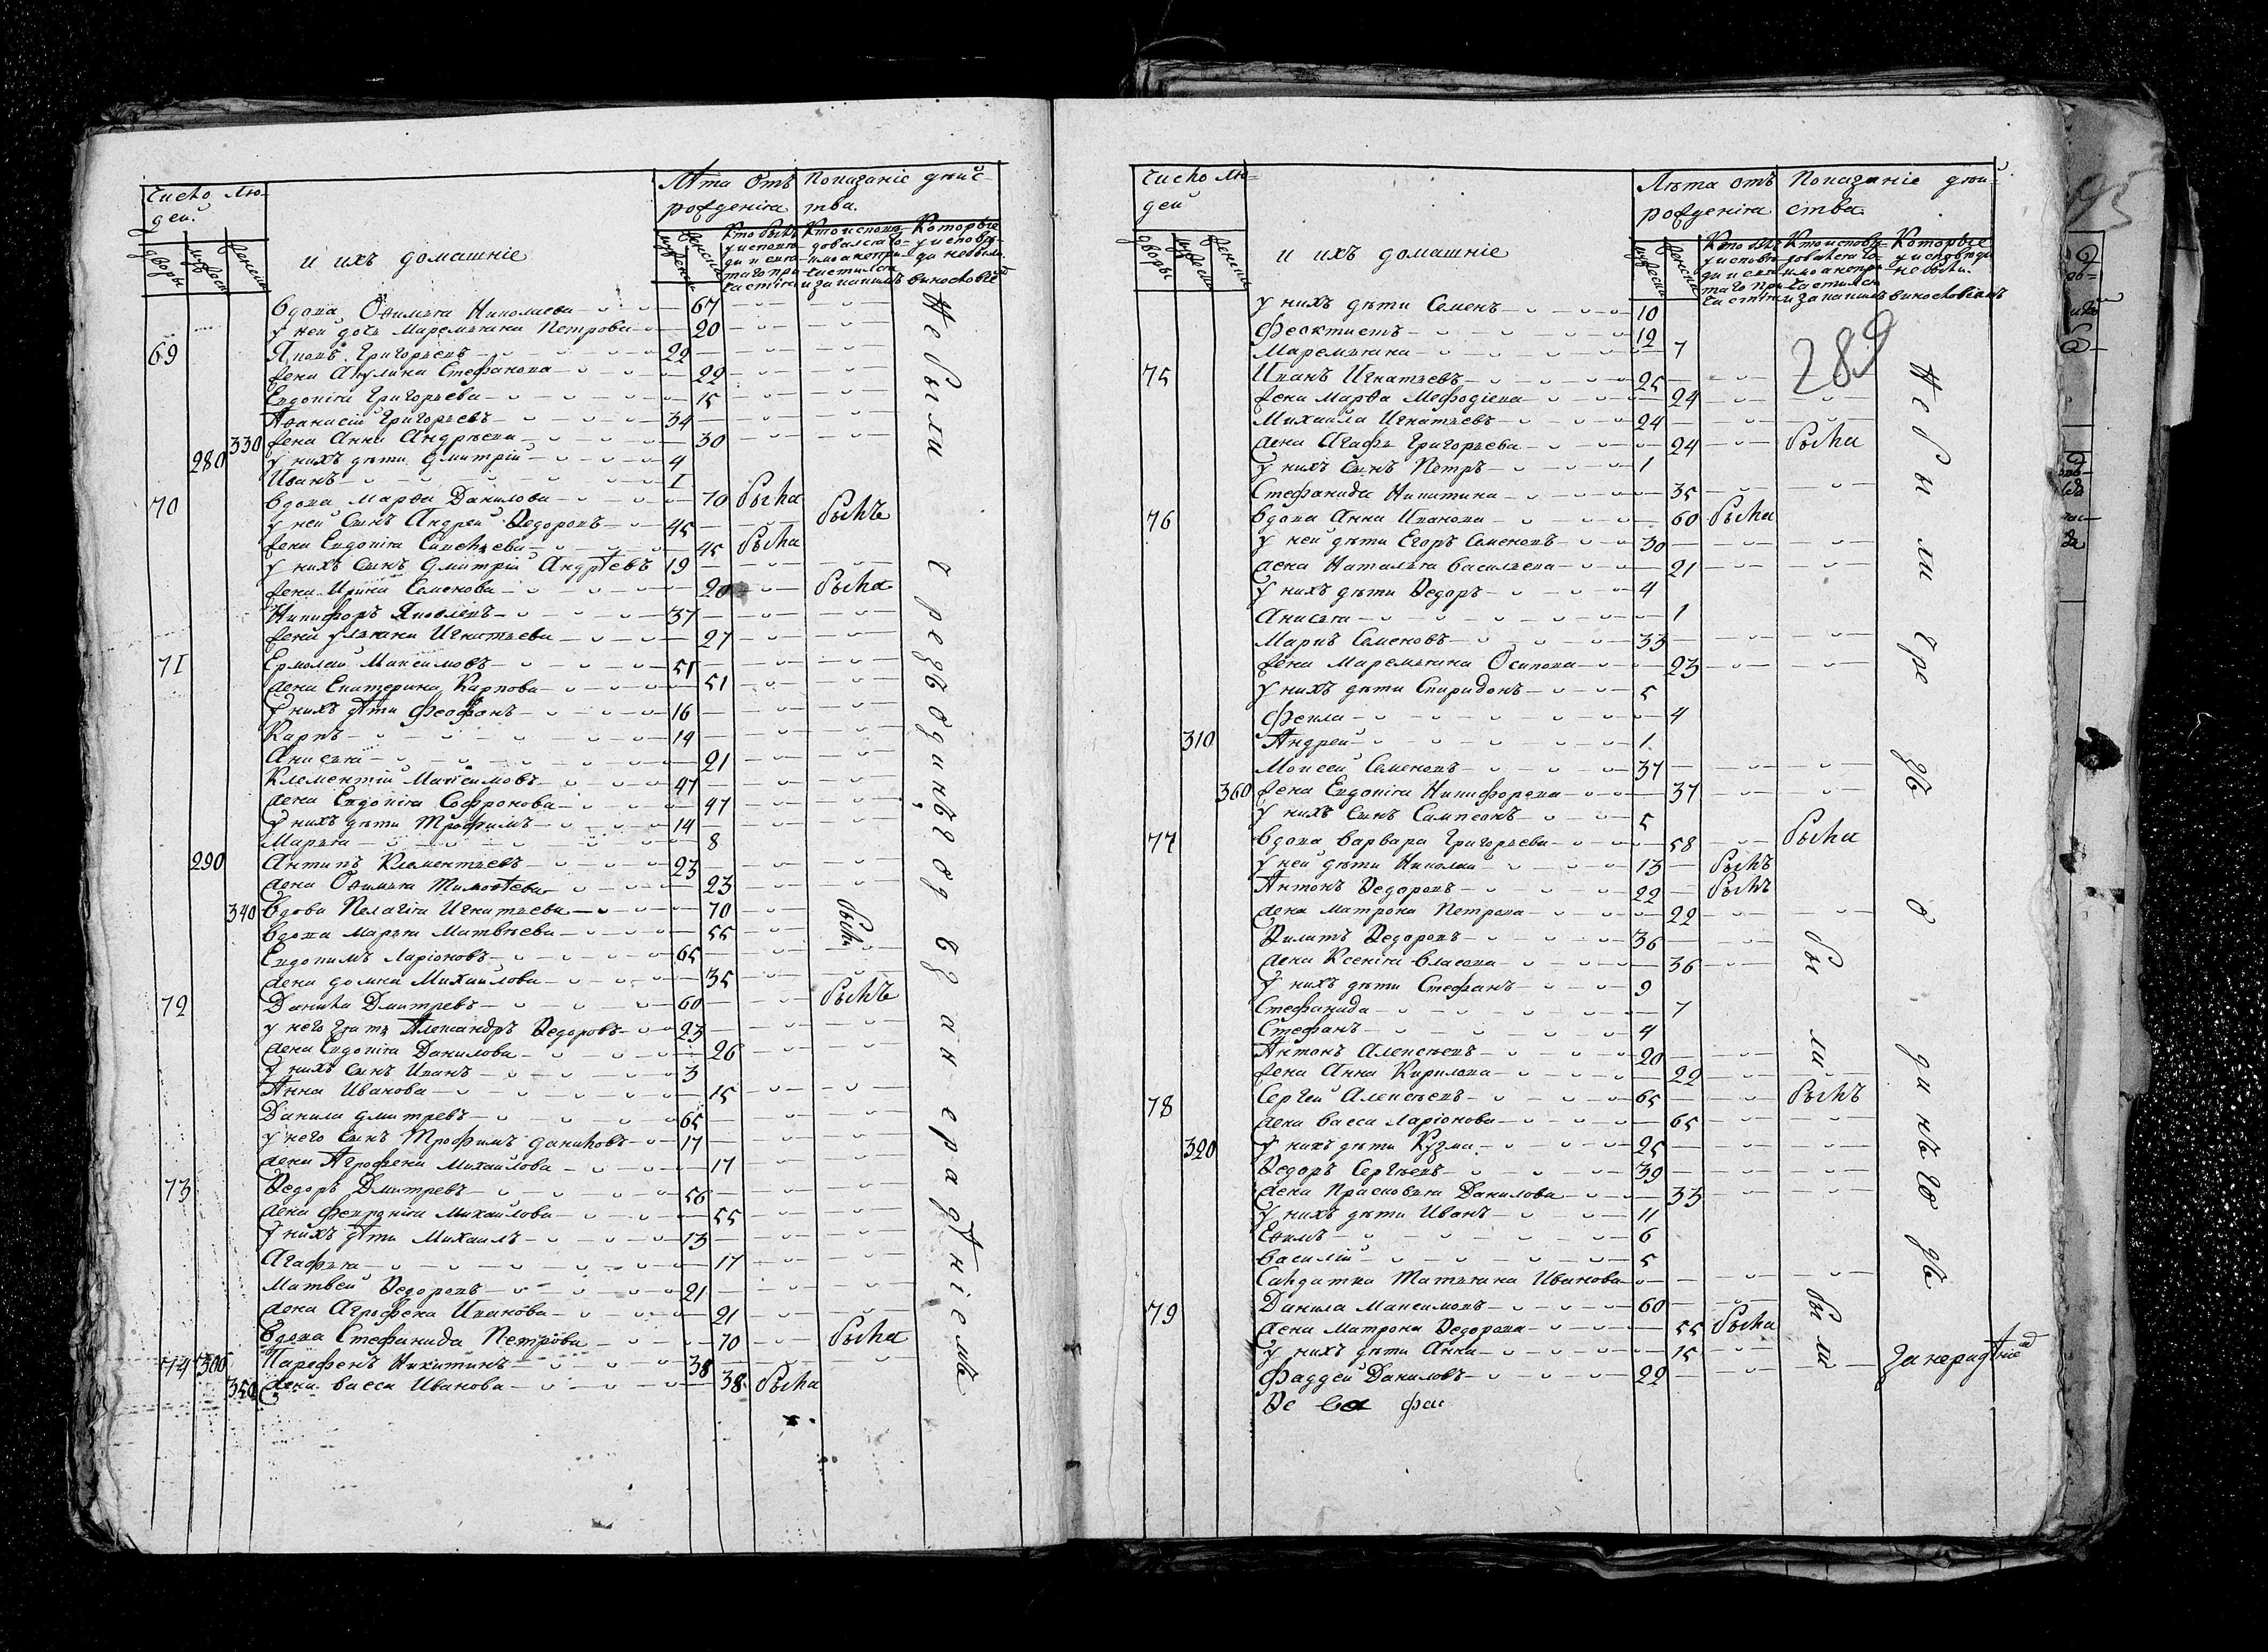 Число лю-
дей
Лѣта отъ рожденія
Показаніе дѣйс-
тва.
дворы
мужеска
женска
и ихъ домашніе
мужеска
женска
Кто былъ у исповѣди и святаго причастія
Кто исповѣдовался токмо а не причастился и за какимъ
Которые у исповѣди не были
винословіемъ
Вдова Офимья Николаева 67
у ней дочь Маремьяна Петрова 20
69 Яковъ Григорьевъ 22
жена Акулина Стефанова 22
Евдокія Григорьева 15
Афанасій Григорьевъ 34
330 жена Анна Андрѣева 30
280 у нихъ дѣти Дмитрій 4
Иванъ 1
70 Вдова Марѳа Данилова 70 была
у ней сынъ Андрей Ѳедоровъ 45 былъ
жена Евдокія Савельева 45 была
у нихъ сынъ Дмитрій Андрѣевъ 19
жена Ирина Семенова 20 была
Никифоръ Яковлевъ 37
жена Ульяна Игнатьева 27
71 Ермолай Максимовъ 51
жена Екатерина Карпова 51
у нихъ дѣти Феофанъ 16
Карпъ 14
Анисья 21
Климентій Максимовъ 47
жена Евдокія Софронова 47
у нихъ дѣти Трофимъ 14
Марья 8
290 Антипъ Клементьевъ 23
жена Офимья Тимоѳеева 23
340 Вдова Пелагія Игнатьева 70
Вдова Марья Матвѣева 55
были
Евдокимъ Ларіоновъ 65
жена Домна Михайлова 35
72 Данила Дмитревъ 60 былъ
у него зять Александръ Ѳедоровъ 23
жена Евдокія Данилова 26
у нихъ сынъ Иванъ 3
Анна Иванова 15
Данила Дмитревъ 65
у него сынъ Трофимъ Даниловъ 17
жена Агрофена Михайлова 17
73 Ѳедоръ Дмитревъ 56
жена Феврокія Михайлова 55
у нихъ дѣти Михаилъ 13
Агафья 17
Матвей Ѳедоровъ 21
жена Агрофена Иванова 21
Вдова Стефанида Петрова 70 была
74 300 Парфенъ Никитинъ 38
350 жена Васса Иванова 38 была
Не были чрезъ одинъ годъ за нерадѣніемъ
Число лю-
дей
Лѣта отъ рожденія
Показаніе дѣй-
ства
дворы
мужеска
женска
и ихъ домашніе
мужеска
женска
Кто былъ у исповѣди и святаго причастія
Кто исповѣдовался токмо а не причастился и за какимъ
Которые у исповѣди не были.
винословіемъ
289
у нихъ дѣти Семенъ 10
Феоктистъ 12
Маремьяна 7
75 Иванъ Игнатьевъ 25
жена Марѳа Мефодіева 24
Михаила Игнатьевъ 24
жена Агафья Григорьева 24 была
у нихъ сынъ Петръ 1
Стефанида Никитина 35
76 Вдова Анна Иванова 60 была
у ней дѣти Егоръ Семеновъ 30
жена Наталья Васильева 21
у нихъ дѣти Ѳедоръ 4
Анисья 1
Маркъ Семеновъ 33
жена Маремьяна Осипова 23
у нихъ дѣти Спиридонъ 5
Фекла 4
310 Андрей 1
Моисей Семеновъ 37
360 жена Евдокія Никифорова 37
у нихъ сынъ Сампсонъ 5
77 Вдова Варвара Григорьева 58 была
у ней дѣти Николай 13 былъ
Антонъ Ѳедоровъ 22 былъ
жена Матрона Петрова 22
Филатъ Ѳедоровъ 36
жена Ксенія Власова 36
у нихъ дѣти Стефанъ 9
Стефанида 7
Стефанъ 4
были
Антонъ Алексѣевъ 20
жена Анна Кирилова 22
78 Сергей Алексѣевъ 65 былъ
жена Васса Ларіонова 65
320 у нихъ дѣти Кузма 25
Ѳедоръ Сергѣевъ 39
жена Прасковья Данилова 33
у нихъ дѣти Иванъ 11
Ефимъ 6
Василій 5
Салдатка Татьяна Иванова
79 Данила Максимовъ 60
жена Матрона Ѳедорова 55 была
у нихъ дѣти Анна 15
Фаддей Даниловъ 22
были
Не были чрезъ одинъ годъ
за нерадѣніе